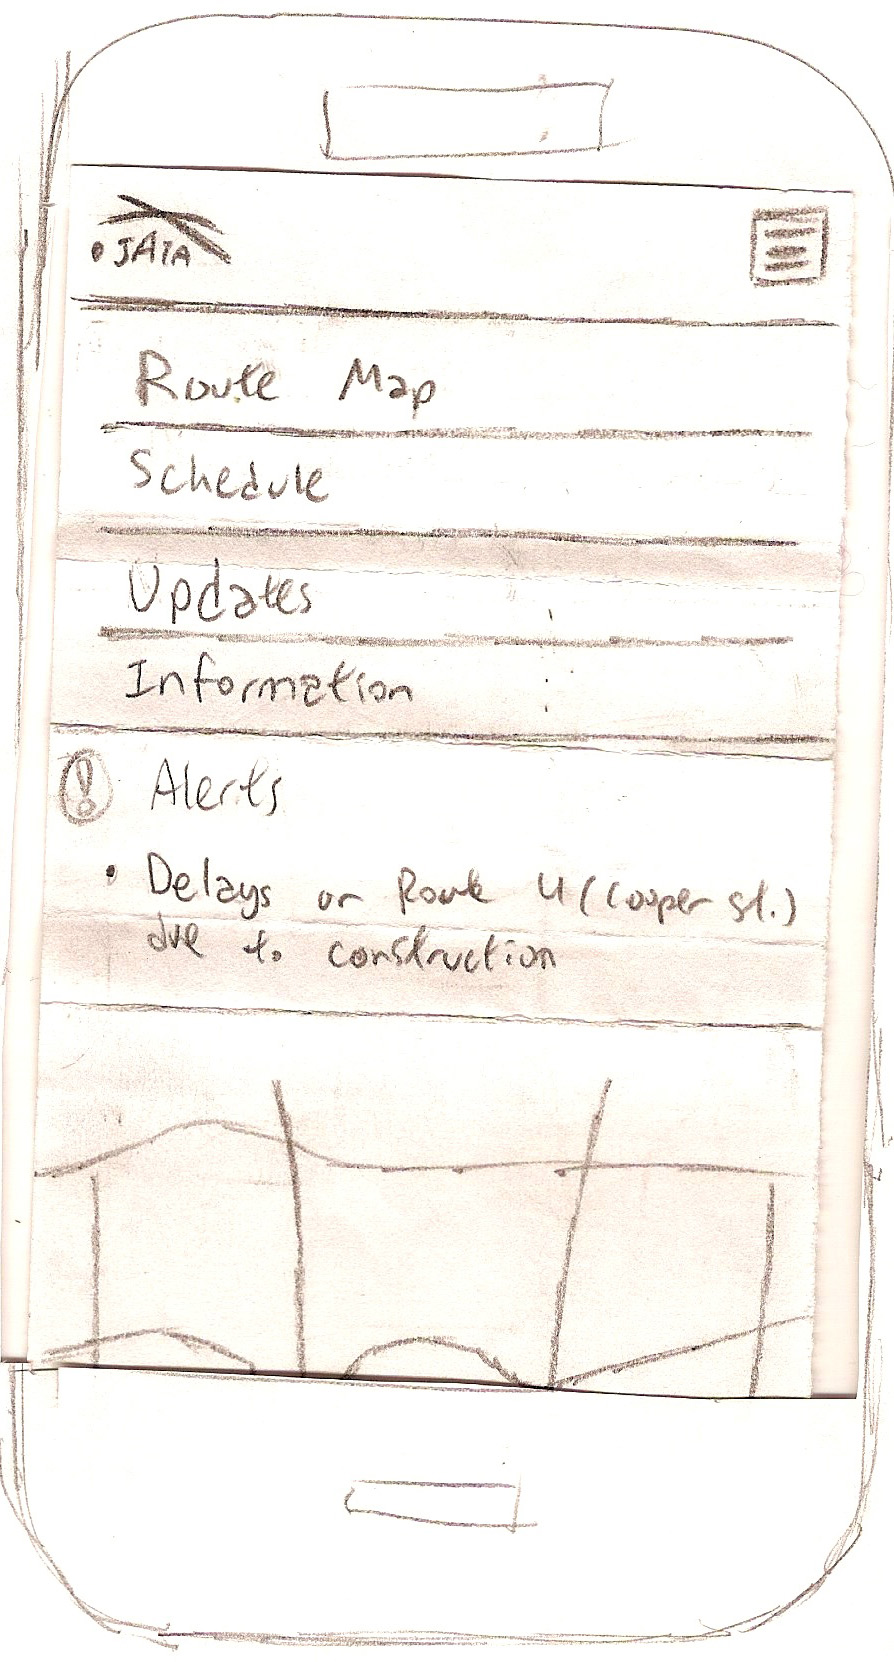 JATA
Route Map
Schedule
Updates
Information
! Alerts
• Delays on Route 4 (Cooper st.)
due to construction